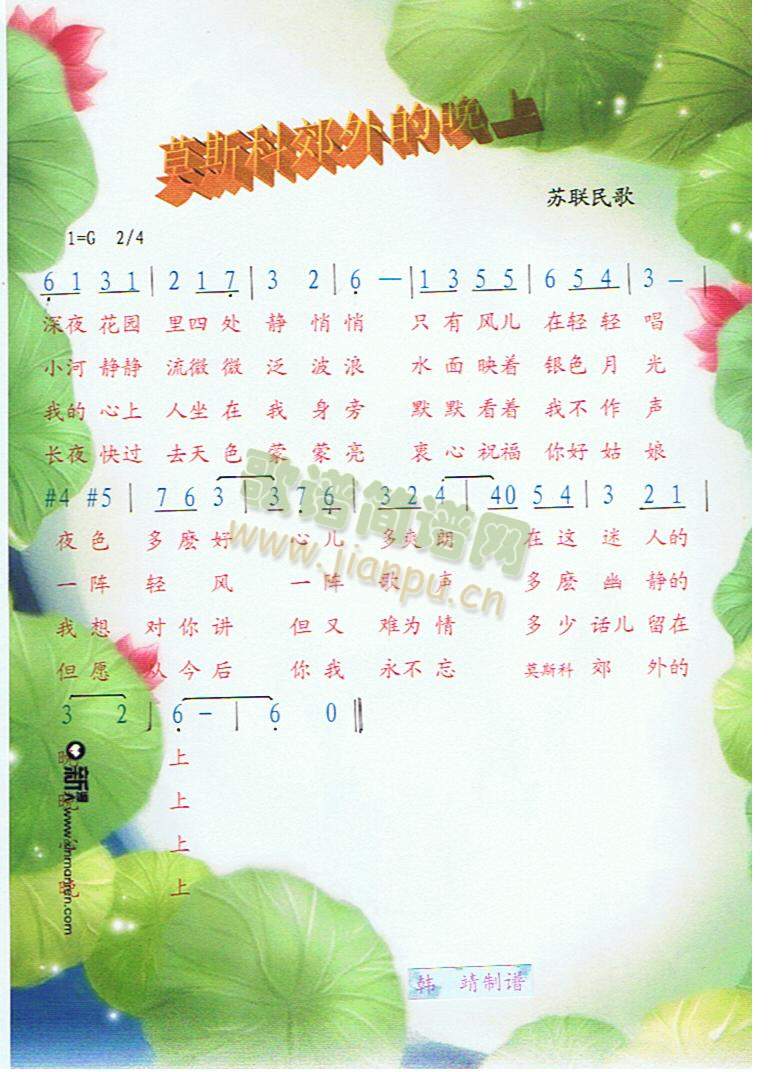 莫斯科郊外的晚上
苏联民歌
1=G 2/4
6 1 3 1 | 2 1 7 | 3 2 | 6 — | 1 3 5 5 | 6 5 4 | 3 — |
深夜 花园 里四 处 静 悄悄 只 有 风儿 在轻 轻 唱
小河 静静 流微 微 泛 波 浪 水 面 映着 银色 月 光
我的 心上 人坐 在 我 身 旁 默 默 看着 我不 作 声
长夜 快过 去天 色 蒙 蒙 亮 衷 心 祝福 你好 姑 娘
#4 #5 | 7 6 3 | 3 7 6 | 3 2 4 | 40 5 4 | 3 2 1 |
夜 色 多 麽 好 心 儿 多 爽 朗 在 这 迷 人的
一 阵 轻 风 一 阵 歌 声 多 麽 幽 静的
我 想 对 你 讲 但 又 难 为 情 多 少 话儿 留在
但 愿 从 今 后 你 我 永 不 忘 莫斯科 郊 外的
3 2 | 6 — | 6 0 ‖
上
上
上
上
歌谱简谱网
www.jianpu.cn
韩 靖制谱